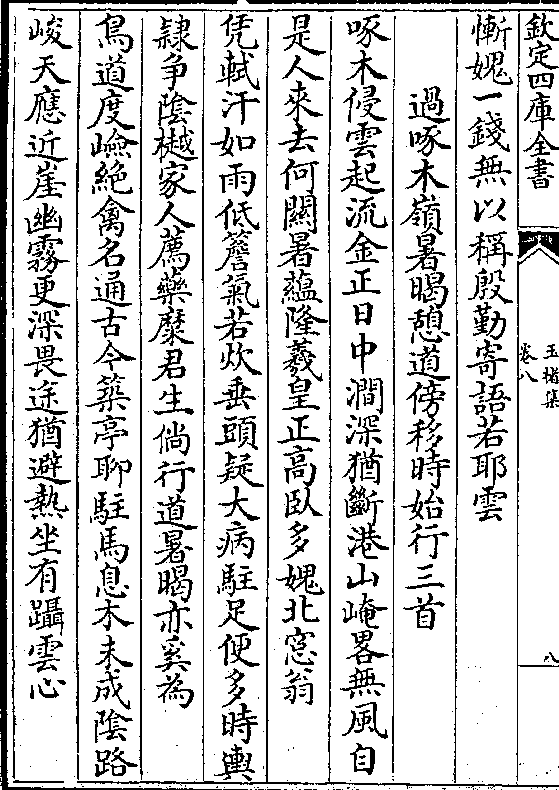 欽定四庫全書
玉楮集
卷八
八
慚媿一錢無以稱殷勤寄語若耶雲
過啄木嶺暑暍憩道傍移時始行三首
啄木侵雲起流金正日中澗深猶斷港山崦畧無風自
是人來去何關暑蘊隆羲皇正高卧多媿北窻翁
凭軾汗如雨低簷氣若炊垂頭疑大病駐足便多時輿
隸争陰樾家人薦藥糜君生倘行道暑暍亦奚為
鳥道度嶮絶禽名通古今築亭聊駐馬息木未成陰路
峻天應近崖幽霧更深畏途猶避熱坐有躡雲心